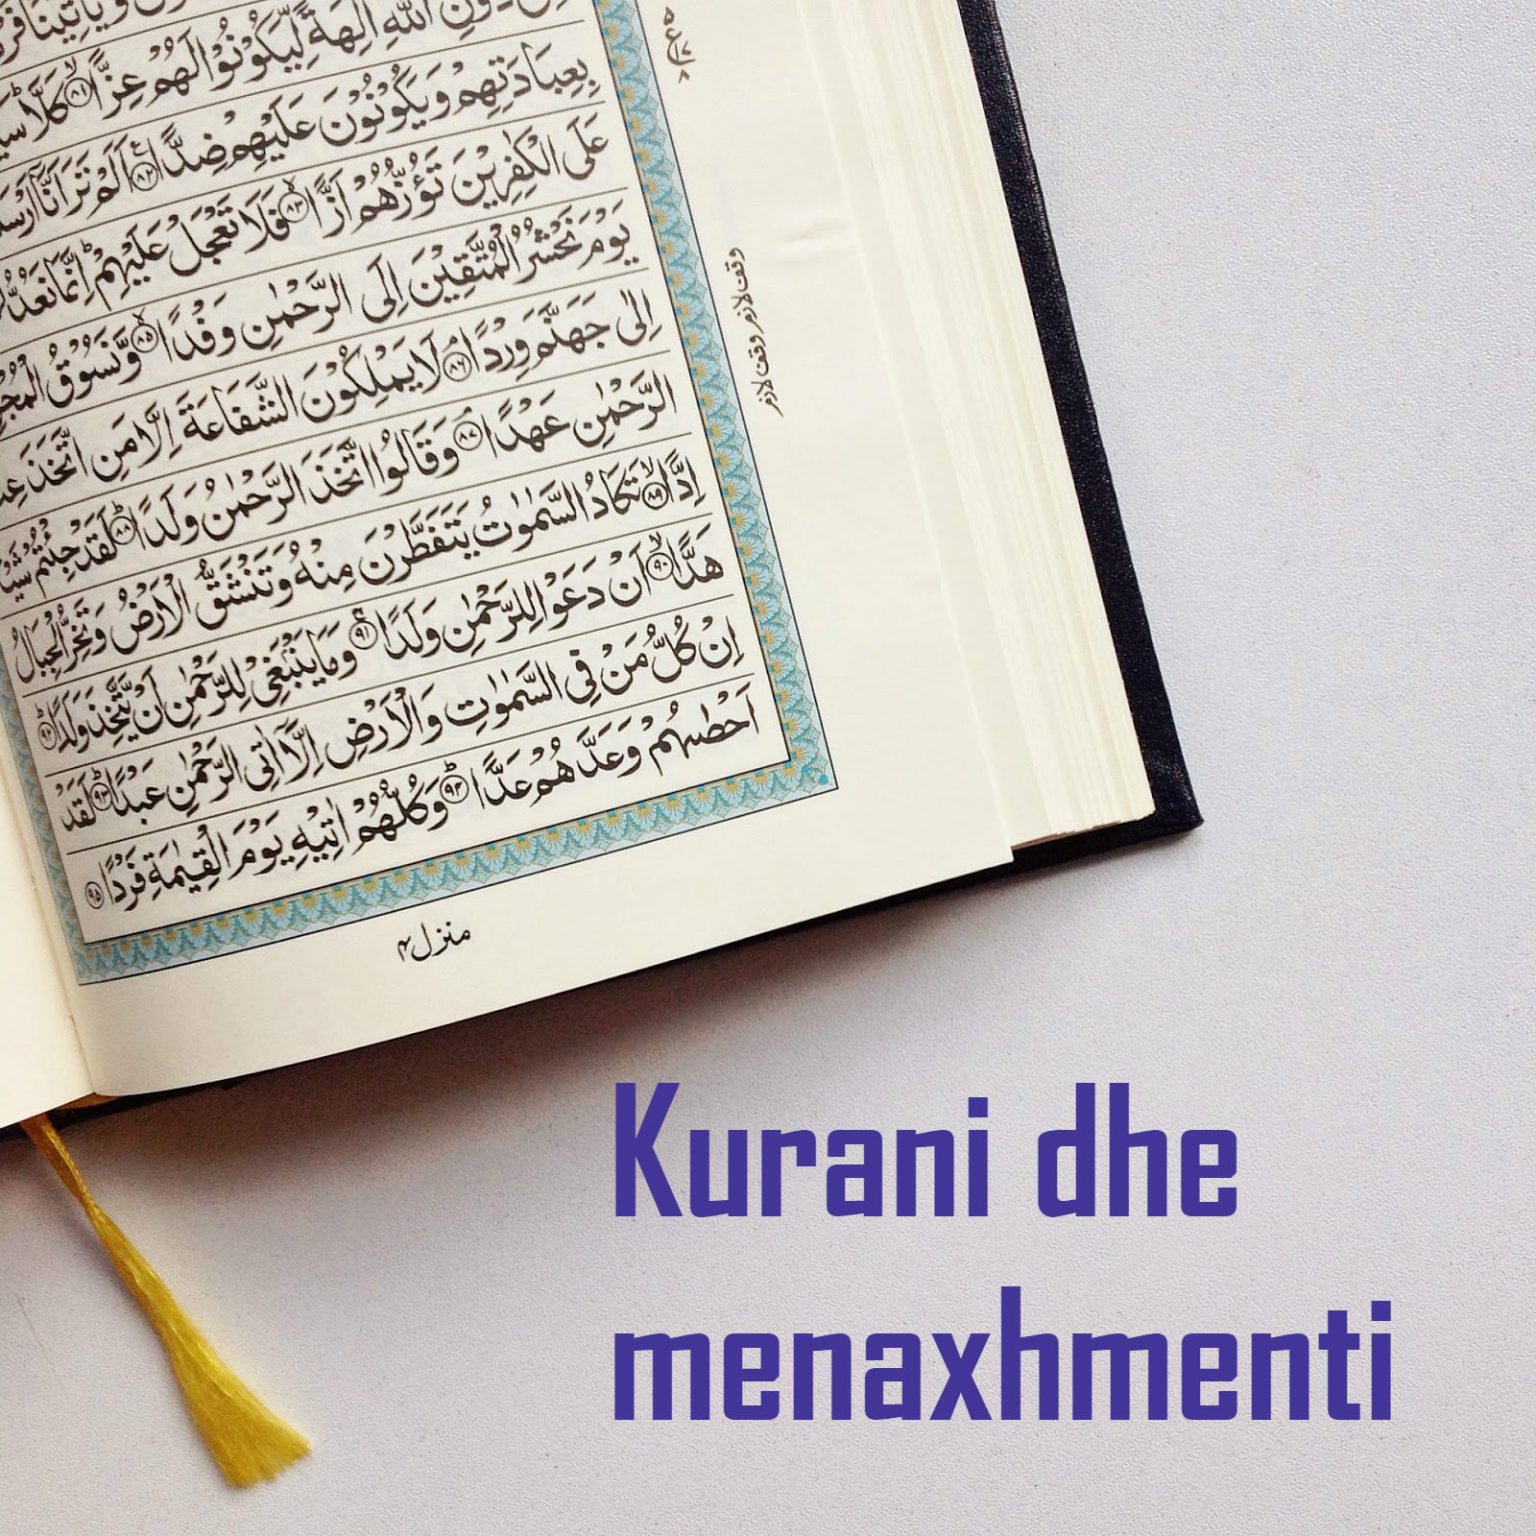 وَيَأْتِيْنَا
دُوْنِ اللّٰهِ اٰلِهَةً لِّيَكُوْنُوْا لَهُمْ عِزًّا ۙ‏ ٨١ كَلَّا
بِعِبَادَتِهِمْ وَيَكُوْنُوْنَ عَلَيْهِمْ ضِدًّا ٨٢ اَلَمْ تَرَ اَنَّا
عَلَى الْكٰفِرِيْنَ تَؤُزُّهُمْ اَزًّا ۙ ٨٣ فَلَا تَعْجَلْ عَلَيْهِمْ ؕ اِنَّمَا نَعُدُّ
يَوْمَ نَحْشُرُ الْمُتَّقِيْنَ اِلَى الرَّحْمٰنِ وَفْدًا ۙ ٨٥ وَّنَسُوْقُ
اِلٰى جَهَنَّمَ وِرْدًا ۘ ٨٦ لَا يَمْلِكُوْنَ الشَّفَاعَةَ اِلَّا مَنِ اتَّخَذَ
الرَّحْمٰنِ عَهْدًا ۘ ٨٧ وَقَالُوا اتَّخَذَ الرَّحْمٰنُ وَلَدًا ؕ ٨٨ لَقَدْ جِئْتُمْ
اِدًّا ۙ ٨٩ تَكَادُ السَّمٰوٰتُ يَتَفَطَّرْنَ مِنْهُ وَتَنْشَقُّ الْاَرْضُ وَتَخِرُّ الْجِبَالُ
هَدًّا ۙ ٩٠ اَنْ دَعَوْا لِلرَّحْمٰنِ وَلَدًا ٩١ وَمَا يَنْۢبَغِيْ لِلرَّحْمٰنِ اَنْ يَّتَّخِذَ وَلَدًا ؕ ٩٢
اِنْ كُلُّ مَنْ فِي السَّمٰوٰتِ وَالْاَرْضِ اِلَّاۤ اٰتِي الرَّحْمٰنِ عَبْدًا ؕ ٩٣ لَقَدْ
اَحْصٰىهُمْ وَعَدَّهُمْ عَدًّا ؕ ٩٤ وَكُلُّهُمْ اٰتِيْهِ يَوْمَ الْقِيٰمَةِ فَرْدًا ٩٥
وقف لازم وقف لازم
منزل ٤
Kurani dhe
menaxhmenti